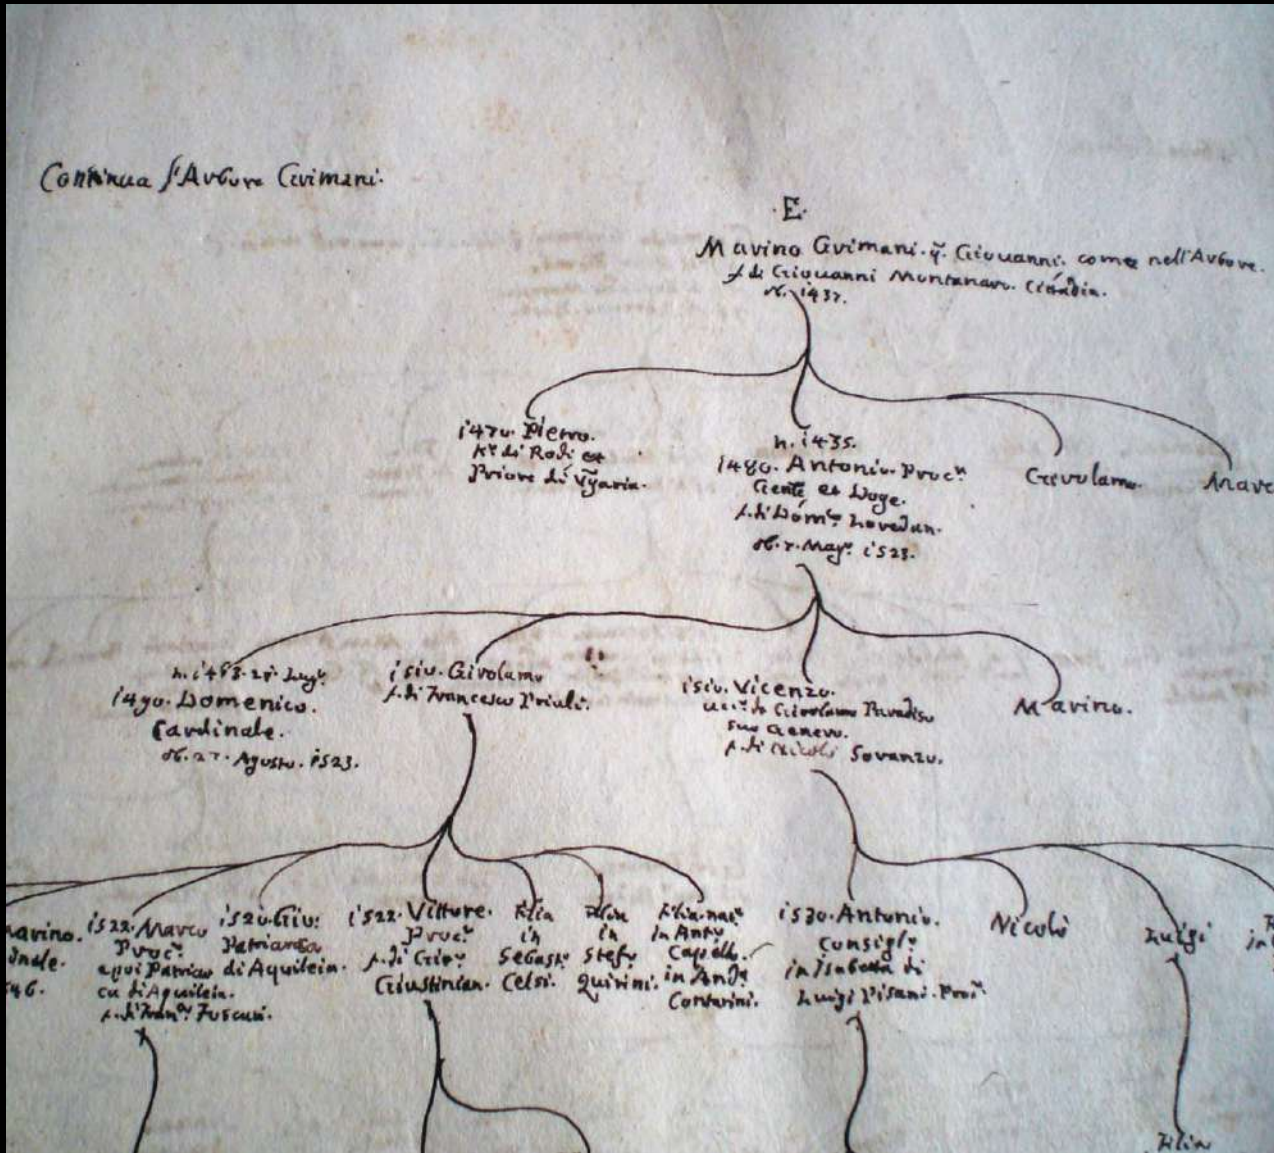 Continua l'Arbore Grimani.
.E.
Marino Grimani. q. Giovanni. come nell'Arbore.
f. di Giovanni Montanaro.
ob. 1437.
1470. Pietro.
Kr. di Rodi et
Priore di
n. 1435.
1480. Antonio. Procr.
et Doge.
f. di Domco Loredan.
ob. 7. Mago. 1523.
Girolamo.
1490. Domenico.
Cardinale.
ob. 27. Agosto. 1523.
1510. Girolamo
f. di Francesco Priuli.
1510. Vicenzo.
da Girolamo Paradiso
suo Genero.
f. di Nicolò Soranzo.
Marino.
1522. Marco
Procr.
Patriar
ca di Aquileia.
f. di Franco Foscari.
1520. Gio:
Patriarca
di Aquileia.
1522. Vittore.
Procr.
f. di Giov.
Giustinian.
Filia
in
Sebast.
Celsi.
Filia
in
Stefo
Quirini.
Filia
in Anto
Capello.
in Anda
Contarini.
1530. Antonio.
Consigl.
in Isabetta di
Luigi Pisani. Procr.
Nicolò
Luigi
Filia